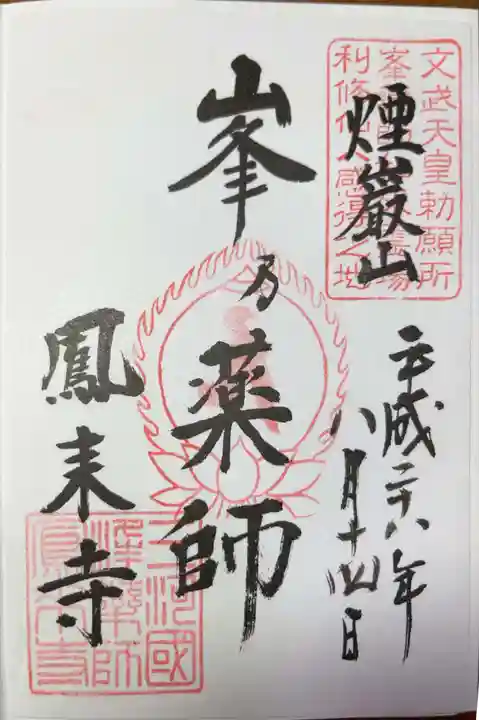 文武天皇勅願所
利修仙人感得之地
煙巌山
平成二十八年
八月十四日
峯乃薬師
鳳来寺
三河國
峯薬師
鳳来寺